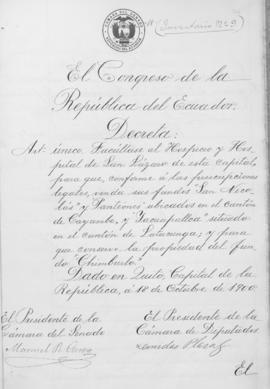 El Congreso de la
República del Ecuador.
Decreta:
Art. único. Facúltase al Hospicio y Hos-
pital de San Lázaro de esta capital,
para que, conforme á las prescripciones
legales, venda sus fundos "San Nico-
lás" y "Pantones" ubicados en el cantón
de Cayambe, y situado
en el cantón de Latacunga; y para
que conserve la propiedad del fun-
do "Chimbuto".
Dado en Quito, Capital de la
República, á 18 de Octubre de 1900.
El Presidente de la
Cámara del Senado
El Presidente de la
Cámara de Diputados
Manuel B.
El